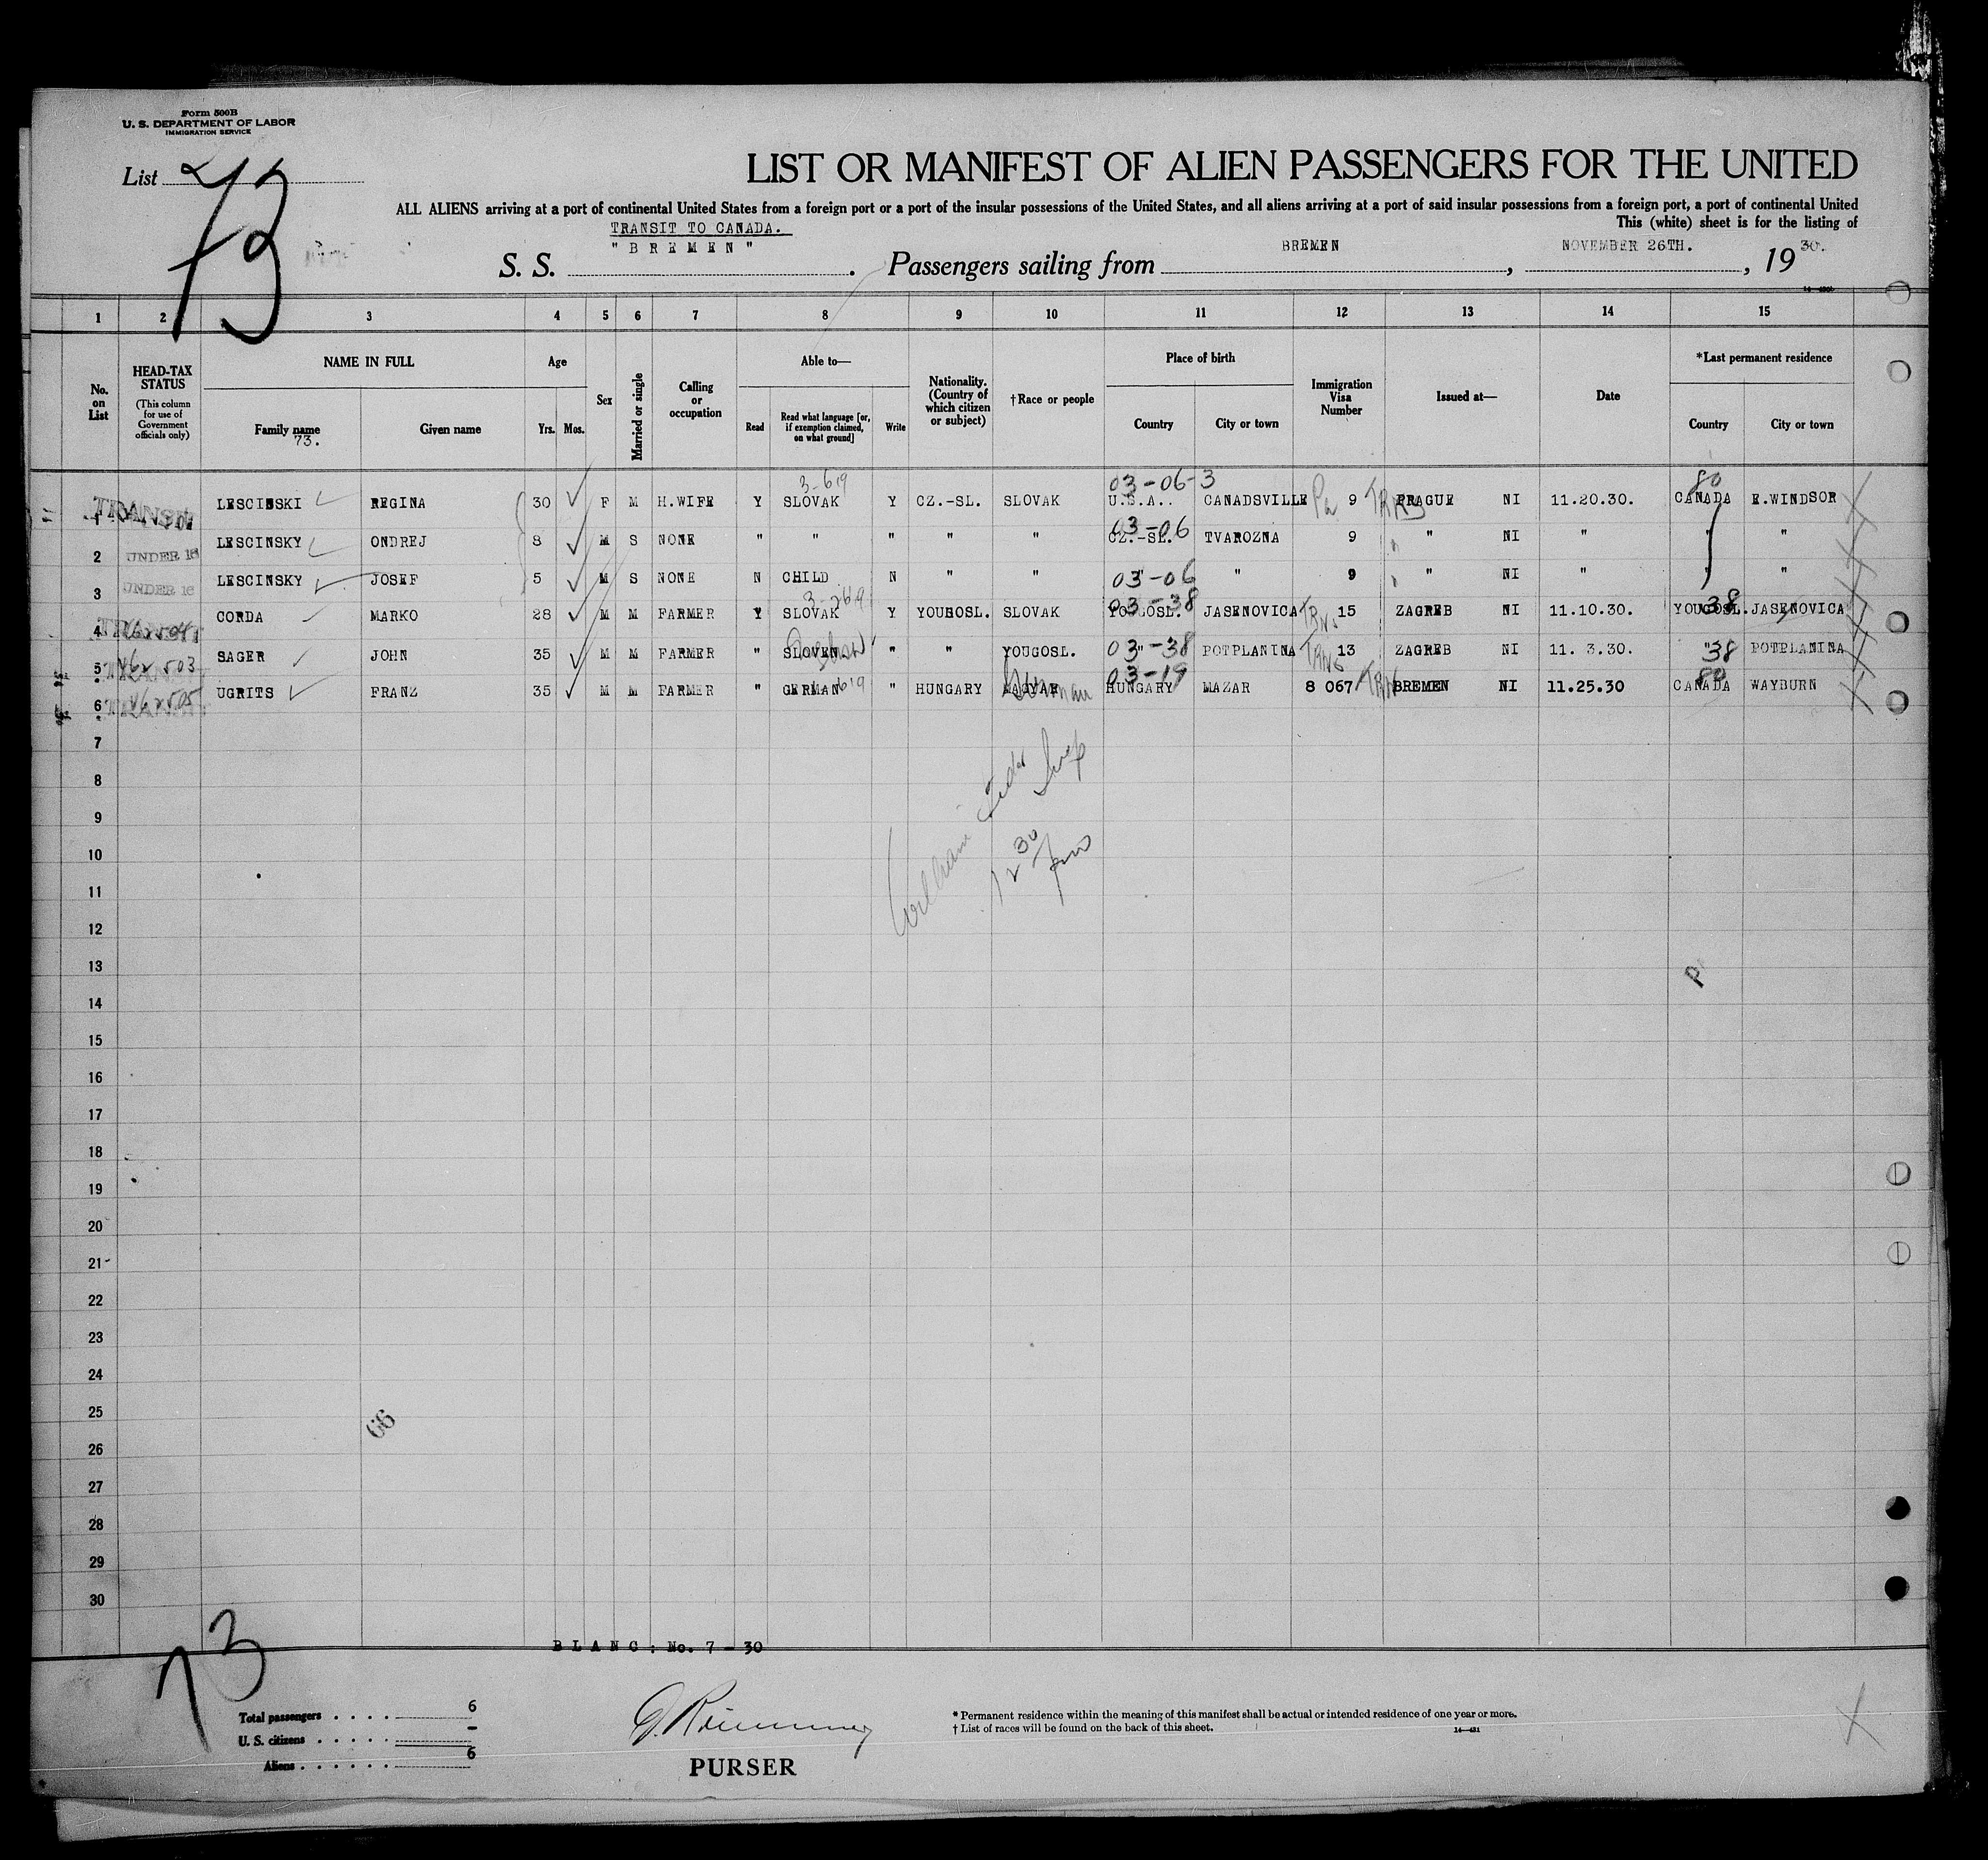 Form 500B
U. S. DEPARTMENT OF LABOR
IMMIGRATION SERVICE
List 73
LIST OR MANIFEST OF ALIEN PASSENGERS FOR THE UNITED
ALL ALIENS arriving at a port of continental United States from a foreign port or a port of the insular possessions of the United States, and all aliens arriving at a port of said insular possessions from a foreign port, a port of continental United
This (white) sheet is for the listing of
TRANSIT TO CANADA.
S. S. "BREMEN". Passengers sailing from BREMEN, NOVEMBER 26TH., 1930.
1 2 3 4 5 6 7 8 9 10 11 12 13 14 15
No. on List
HEAD-TAX STATUS
(This column for use of Government officials only)
NAME IN FULL
Family name
73.
Given name
Age
Yrs. Mos.
Sex
Married or single
Calling or occupation
Able to—
Read
Read what language [or, if exemption claimed, on what ground]
Write
Nationality. (Country of which citizen or subject)
†Race or people
Place of birth
Country
City or town
Immigration Visa Number
Issued at—
Date
*Last permanent residence
Country
City or town
3-619 03-06-3 80
1 TRANSIT LESCINSKI REGINA 30 F M H.WIFE Y SLOVAK Y CZ.-SL. SLOVAK U.S.A.. CANADSVILLE Pa 9 PRAGUE NI 11.20.30. CANADA E.WINDSOR
03-06
2 UNDER 16 LESCINSKY ONDREJ 8 M S NONE " " " " " CZ.-SL. TVAROZNA 9 " NI " " "
03-06
3 UNDER 16 LESCINSKY JOSEF 5 M S NONE N CHILD N " " " " 9 " NI " " "
03-38 38
4 CORDA MARKO 28 M M FARMER Y SLOVAK Y YOUGOSL. SLOVAK YOUGOSL. JASENOVICA 15 ZAGREB NI 11.10.30. YOUGOSL. JASENOVICA
03-38 38
5 SAGER JOHN 35 M M FARMER " SLOVEN. " " YOUGOSL. " POTPLANINA 13 ZAGREB NI 11. 3.30. " POTPLANINA
03-19 80
6 UGRITS FRANZ 35 M M FARMER " GERMAN " HUNGARY MAGYAR German HUNGARY MAZAR 8 067 BREMEN NI 11.25.30 CANADA WAYBURN
7
8
9
10
William
12 30
11
12
13
P
14
15
16
17
18
19
20
21
22
23
24
25
66
26
27
28
29
30
BLANC: No. 7 - 30
73
Total passengers 6
U. S. citizens –
Aliens 6
PURSER
* Permanent residence within the meaning of this manifest shall be actual or intended residence of one year or more.
† List of races will be found on the back of this sheet.